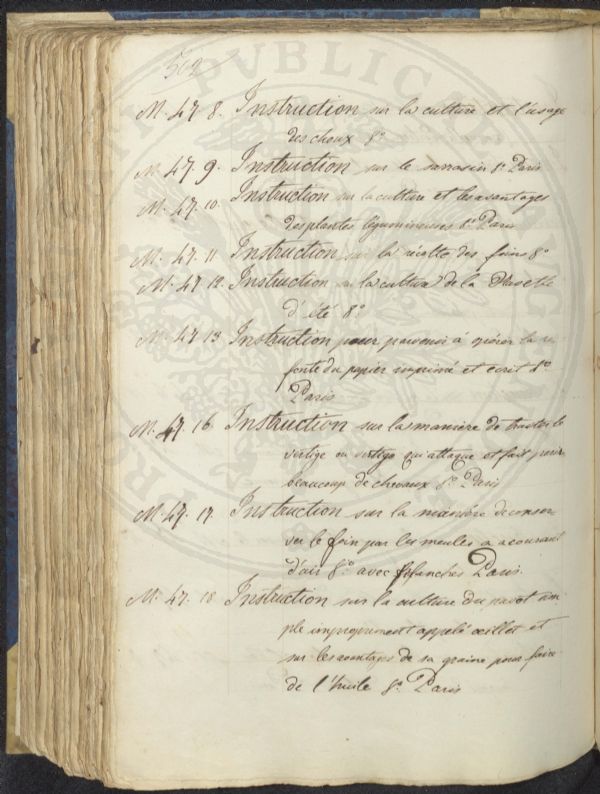 502
M. 47. 8. Instruction sur la culture et l'usage
des choux 8°
M. 47. 9. Instruction sur le sarrasin 8° Paris
M. 47. 10. Instruction sur la culture et les avantages
des plantes légumineuses 8° Paris
M. 47. 11 Instruction sur la récolte des foins 8°
M. 47. 12. Instruction sur la culture de la Navette
d'été 8°
M. 47 13 Instruction pour parvenir à opérer la re
fonte du papier imprimé et ecrit 8°
Paris
M. 47. 16 Instruction sur la manière de traiter le
vertige ou vertigo qui attaque et fait périr
beaucoup de chevaux 8° Paris
M. 47. 17. Instruction sur la manière de conser
ver le foin par les meules a courant
d'air 8° avec planches Paris.
M. 47. 18 Instruction sur la culture du pavot sim
ple improprement appelé œillet et
sur les avantages de sa graine pour faire
de l'huile 8° Paris